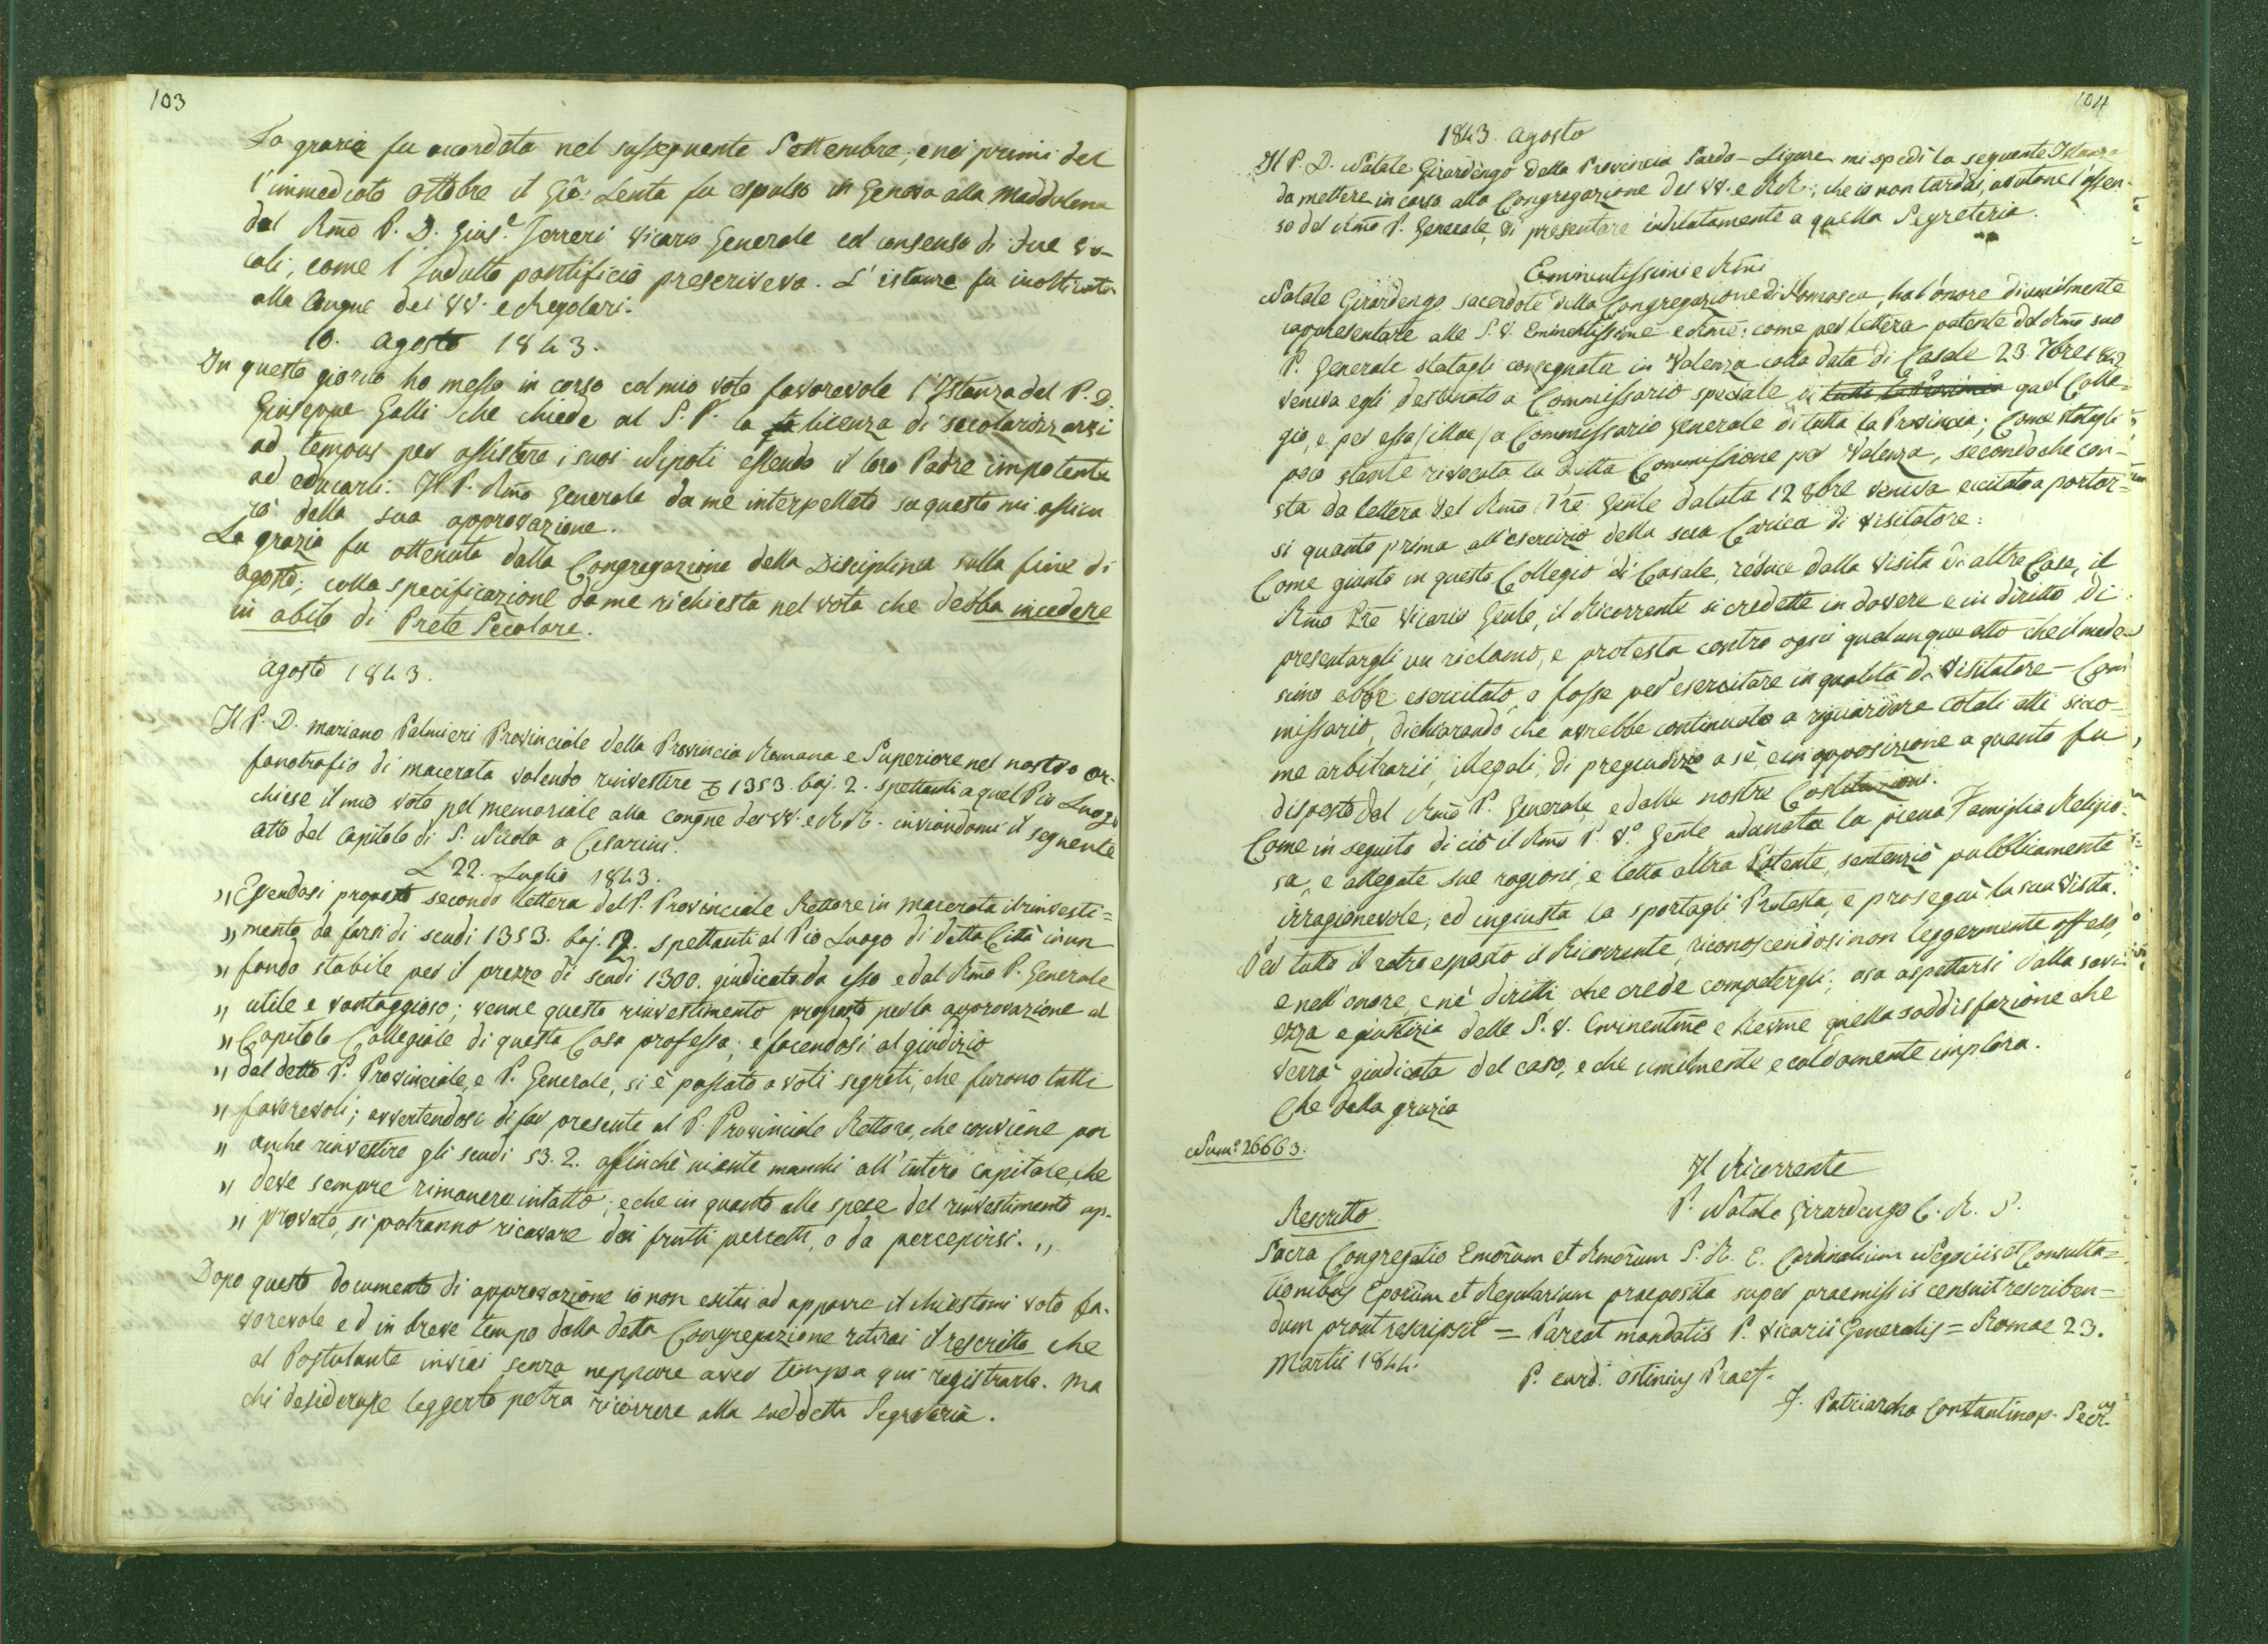 103
La grazia fu accordata nel susseguente Settembre; e nei primi del
l'immediato Ottobre il Gio: Lenta fu espulso in Genova alla Maddalena
dal Rmo P. D. Gius.e Ferreri Vicario Generale col consenso di due Vo-
cali, come l'Indulto pontificio prescriveva. L'istanza fu inoltrata
alla Congne dei VV. e Regolari.
10. Agosto 1843.
In questo giorno ho messo in corso col mio voto favorevole l'Istanza del P. D.
Giuseppe Galli che chiede al S. P. la licenza di secolarizzarsi
ad tempus per assistere i suoi Nipoti essendo il loro Padre impotente
ad educarli. Il P. Rmo Generale da me interpellato su questo mi assicu
rò della sua approvazione.
La grazia fu ottenuta dalla Congregazione della Disciplina sulla fine di
Agosto; colla specificazione da me richiesta nel voto che debba incedere
in abito di Prete Secolare.
Agosto 1843.
Il P. D. Mariano Palmieri Provinciale della Provincia Romana e Superiore nel nostro or-
fanotrofio di Macerata volendo rinvestire 1353. baj. 2. spettanti a quel Pio Luogo
chiese il mio voto pel memoriale alla congne dei VV. e RR. inviandomi il seguente
atto del Capitolo di S. Nicola a Cesarini.
22. Luglio 1843.
„ Essendosi proposto secondo lettera del P. Provinciale Rettore in Macerata il rinvesti=
„ mento da farsi di scudi 1353. baj. 2. spettanti al Pio Luogo di detta Città in un
„ fondo stabile per il prezzo di scudi 1300. giudicato da esso e dal Rmo P. Generale
„ utile e vantaggioso; venne questo rinvestimento proposto per la approvazione al
„ Capitolo Collegiale di questa Casa professa; e facendosi al giudizio
„ del detto P. Provinciale, e P. Generale, si è passato a voti segreti, che furono tutti
„ favorevoli; avvertendosi di far presente al P. Provinciale Rettore, che conviene poi
„ anche rinvestire gli scudi 53. 2. affinchè niente manchi all'intero Capitale, che
„ deve sempre rimanere intatto; e che in quanto alle spese del rinvestimento ap-
„ provato, si potranno ricavare dai frutti percetti, o da percepirsi. „
Dopo questo documento di approvazione io non esitai ad apporre il chiestomi voto fa-
vorevole ed in breve tempo dalla detta Congregazione ritirai il rescritto che
al Postulante inviai senza neppure aver tempo a qui registrarlo. Ma
chi desiderasse leggerlo potrà ricorrere alla suddetta Segreteria.
104
1843. Agosto
Il P. D. Natale Girardengo della Provincia Sardo-Ligure mi spedì la seguente Istanza
da mettere in corso alla Congregazione dei VV. e RR.; che io non tardai, avutone l'assen-
so del Rmo P. Generale, di presentare indilatamente a quella Segreteria.
Eminentissimi e Rmi
Natale Girardengo sacerdote della Congregazione di Somasca, ha l'onore di umilmente
rappresentare alle S. V. Eminentissime e Rme: come per lettera patente del Rmo suo
P. Generale statagli consegnata in Valenza colla data di Casale 23. 7bre 1842
veniva egli destinato a Commissario speciale di tutta la Provincia quel Colle=
gio, e per essa /illae/ a Commissario Generale di tutta la Provincia; Come statagli
poco stante rivocata la ditta Commissione per Valenza, secondochè con-
sta da lettera del Rmo Pre Gente datata 12 8bre veniva eccitato a portar=
si quanto prima all'esercizio della sua Carica di Visitatore:
Come giunto in questo Collegio di Casale, reduce dalla visita di altre Case, il
Rmo Pre Vicario Genle, il Ricorrente si credette in dovere e in diritto di
presentargli un richiamo, e protesta contro ogni qualunque atto che il mede-
simo ebbe esercitato, o fosse per esercitare in qualità di Visitatore-Com
missario, dichiarando che avrebbe continuato a riguardare cotali atti sicco=
me arbitrarii, illegali, di pregiudizio a sè, e in opposizione a quanto fu
disposto dal Rmo P. Generale, e dalle nostre Costituzioni.
Come in seguito di ciò il Rmo P. Vo Gente adunata la piena Famiglia Religio-
sa, e allegate sue ragioni, e letta altra Patente, sentenziò pubblicamente
irragionevole, ed ingiusta la sportagli Protesta, e proseguì la sua visita.
Per tutto il retroesposto il Ricorrente, riconoscendosi non leggermente offeso,
e nell'onore, e nè diritti, che crede competergli; osa aspettarsi dalla savi
ezza e giustizia delle S. V. Eminentme e Revme quella soddisfazione che
verrà giudicata del caso, e che umilmente e caldamente implora.
Che della grazia
Num.o 26663.
Il Ricorrente
P. Natale Girardengo C. R. S.
Rescritto.
Sacra Congregatio Emorum et Rmorum S. R. E. Cardinalium Negociis et Consulta=
tionibus Eporum et Regularium praeposita super praemissis censuit rescriben=
dum prout rescripsit = Pareat mandatis P. Vicarii Generalis = Romae 23.
Martii 1844.
P. card. Ostinius Praef.
J. Patriarcha Constantinop. Secr.us